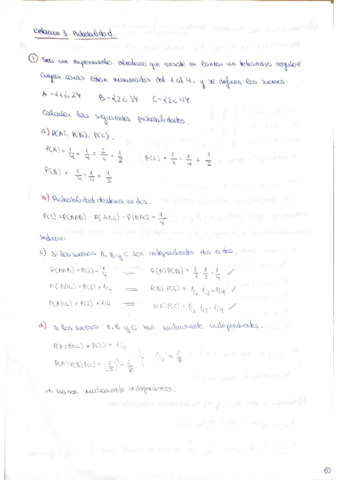 Relación 3. Probabilidad.
① Sea un experimento aleatorio que consiste en lanzar un tetraedro regular
cuyas caras están numeradas del 1 al 4, y se definen los sucesos
A = {1 ó 2} B = {2 ó 3} C = {2 ó 4}
Calcular las siguientes probabilidades.
a) P(A), P(B), P(C).
P(A) = 1/4 + 1/4 = 2/4 = 1/2 P(C) = 1/4 + 1/4 = 1/2
P(B) = 1/4 + 1/4 = 1/2
b) Probabilidad de obtener un dos.
P(2) = P(A∩B) = P(A∩C) = P(B∩C) = 1/4
Indicar:
c) Si los sucesos A, B y C son independientes dos a dos.
P(A∩B) = P(2) = 1/4 P(A)·P(B) = 1/2 · 1/2 = 1/4 ✓
P(B∩C) = P(2) = 1/4 = P(B)·P(C) = 1/2 · 1/2 = 1/4 ✓
P(A∩C) = P(2) = 1/4 = P(A)·P(C) = 1/2 · 1/2 = 1/4 ✓
d) Si los sucesos A, B y C son mutuamente independientes.
P(A∩B∩C) = P(2) = 1/4
P(A)·P(B)·P(C) = (1/2)³ = 1/8 } 1/4 ≠ 1/8
→ No son mutuamente independientes.